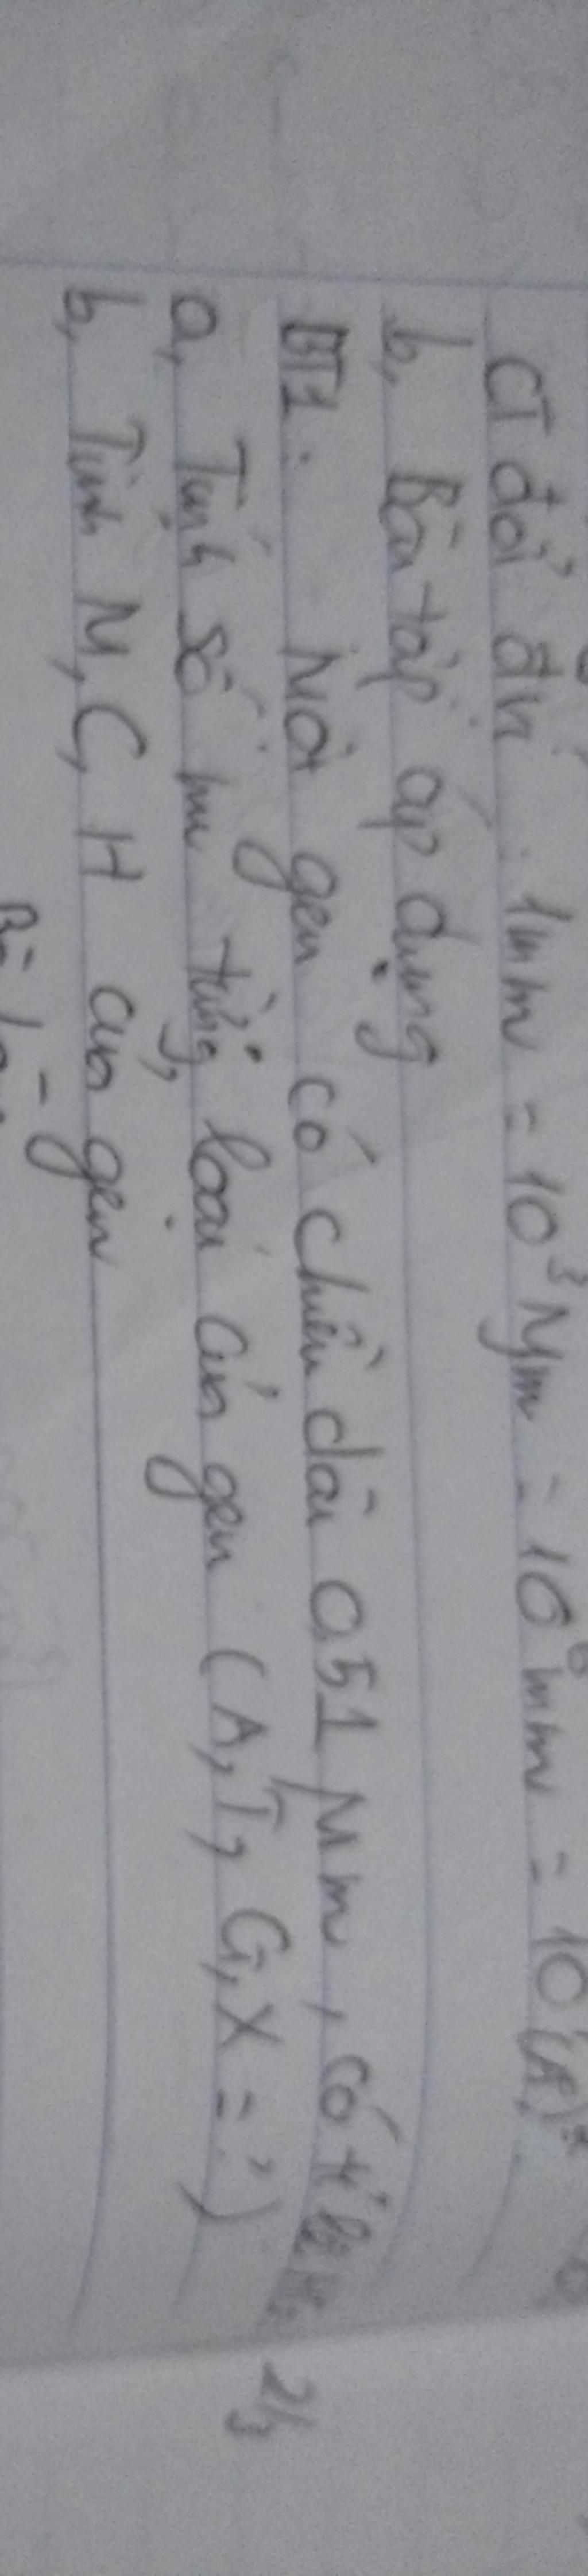 CT đổi đv: 1mm = 10³ µm = 10⁶ nm = 10⁷ (A)
b, Bài tập áp dụng
BT1. Một gen có chiều dài 0,51 µm, có tỉ lệ 2/3
a, Tính số nu từng loại của gen (A, T, G, X = ?)
b, Tính M, C, H của gen